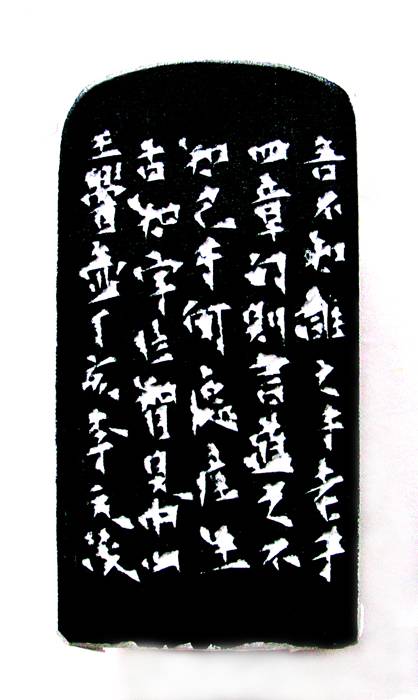 吾不知誰之子老子
四章句則言道之不
知之何處產生
古知字從智見中山
王壺丁亥季文